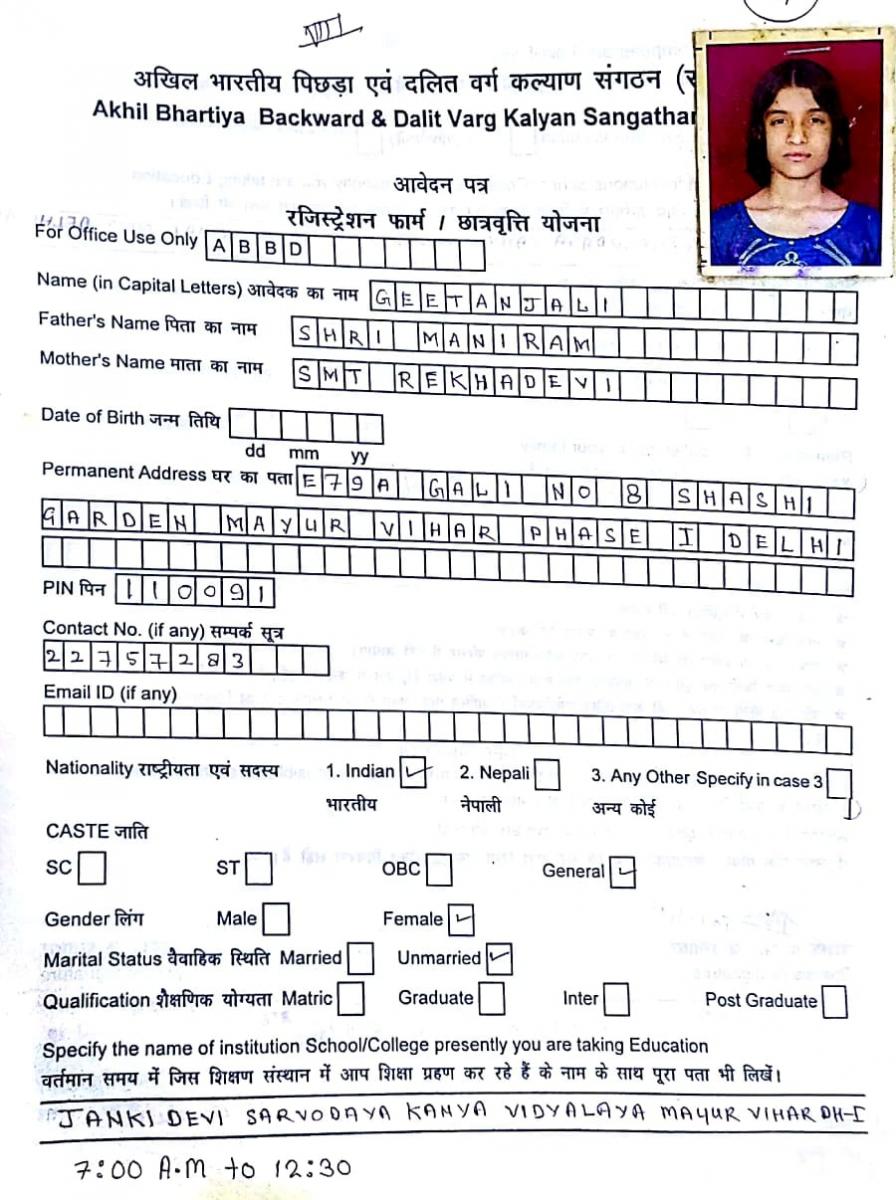 VIII
अखिल भारतीय पिछड़ा एवं दलित वर्ग कल्याण संगठन
Akhil Bhartiya Backward & Dalit Varg Kalyan Sangathan
आवेदन पत्र
रजिस्ट्रेशन फार्म / छात्रवृत्ति योजना
For Office Use Only ABBD
Name (in Capital Letters) आवेदक का नाम GEETANJALI
Father's Name पिता का नाम SHRI MANIRAM
Mother's Name माता का नाम SMT REKHADEVI
Date of Birth जन्म तिथि
dd mm yy
Permanent Address घर का पता E79A GALI NO 8 SHASHI
GARDEN MAYUR VIHAR PHASE I DELHI
PIN पिन 110091
Contact No. (if any) सम्पर्क सूत्र
22757283
Email ID (if any)
Nationality राष्ट्रीयता एवं सदस्य 1. Indian 2. Nepali 3. Any Other Specify in case 3
भारतीय नेपाली अन्य कोई
CASTE जाति
SC ST OBC General
Gender लिंग Male Female
Marital Status वैवाहिक स्थिति Married Unmarried
Qualification शैक्षणिक योग्यता Matric Graduate Inter Post Graduate
Specify the name of institution School/College presently you are taking Education
वर्तमान समय में जिस शिक्षण संस्थान में आप शिक्षा ग्रहण कर रहे हैं के नाम के साथ पूरा पता भी लिखें।
JANKI DEVI SARVODAYA KANYA VIDYALAYA MAYUR VIHAR DH-I
7:00 A.M to 12:30